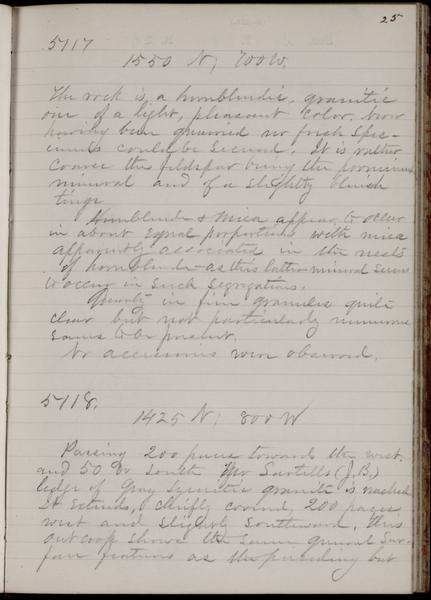 25
5117
1550 N, 700W.
The rock is a hornblendic, granitic
one of a light, pleasant color.
having been quarried no fresh spec-
imens could be secured. It is rather
coarse the feldspar being the prominent
mineral and of a slightly bluish
tinge
Hornblende & mica appear to occur
in about equal proportions with mica
apparently associated in the nests
of hornblende as this latter mineral seems
to occur in such segregations.
Quartz in fine granules quite
clear but not particularly numerous
seems to be present.
No accessories were observed.
5118.
1425 N, 800 W
Passing 200 paces towards the west
and 50 to south Mr Sartells (J.B.)
ledge of Gray Syenitic granite is reached
It extends, chiefly covered, 200 paces
west and slightly southward, this
outcrop shows the same general sur-
face features as the preceding but